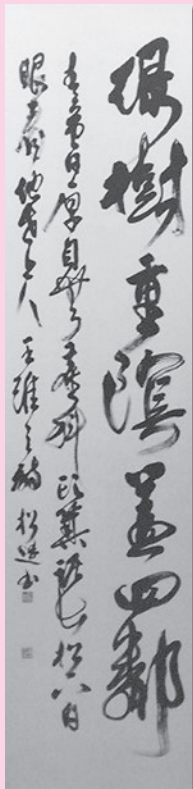 緑樹重陰蓋四鄰
青苔日厚自無塵科頭箕踞長松下白
眼看他世上人 王維之詩 松書